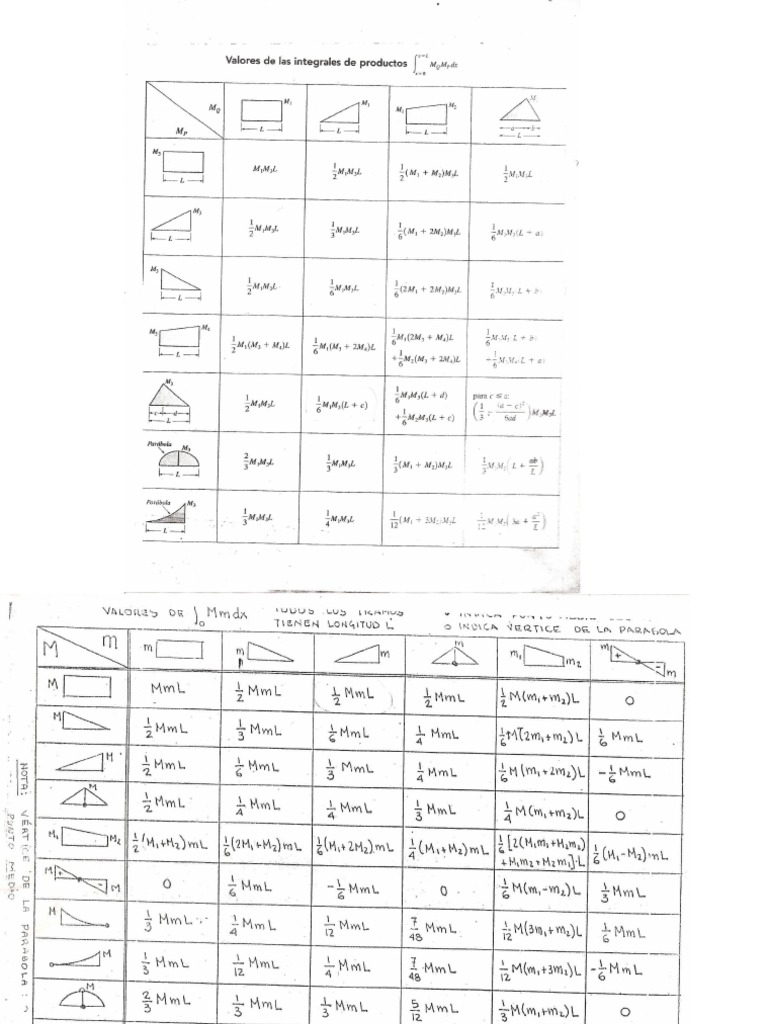 Valores de las integrales de productos ∫ x=0 x=L M_Q M_P dx
M_Q M_P
M₁ L
M₁ L
M₁ M₂ L
M₁ a b L
M₃ L
M₁M₃L
1/2 M₁M₃L
1/2 (M₁ + M₂)M₃L
1/2 M₁M₃L
M₃ L
1/2 M₁M₃L
1/3 M₁M₃L
1/6 (M₁ + 2M₂)M₃L
1/6 M₁M₃(L + a)
M₃ L
1/2 M₁M₃L
1/6 M₁M₃L
1/6 (2M₁ + 2M₂)M₃L
1/6 M₁M₃(L + b)
M₃ M₄ L
1/2 M₁(M₃ + M₄)L
1/6 M₁(M₃ + 2M₄)L
1/6 M₁(2M₃ + M₄)L
+ 1/6 M₂(M₃ + 2M₄)L
1/6 M₁M₃(L + b)
+ 1/6 M₁M₄(L + a)
M₃ c d L
1/2 M₁M₃L
1/6 M₁M₃(L + c)
1/6 M₁M₃(L + d)
+ 1/6 M₂M₃(L + c)
para c ≤ a:
(1/3 - (a − c)²/6ad) M₁M₃L
Parábola M₃ L
2/3 M₁M₃L
1/3 M₁M₃L
1/3 (M₁ + M₂)M₃L
1/3 M₁M₃(L + ab/L)
Parábola M₃ L
1/3 M₁M₃L
1/4 M₁M₃L
1/12 (M₁ + 3M₂)M₃L
1/12 M₁M₃(3a + a²/L)
VALORES DE ∫₀ Mmdx TODOS LOS TRAMOS
TIENEN LONGITUD L
o INDICA VERTICE DE LA PARABOLA
M m
m
m
m
m
m₁ m₂
m + - m
M
MmL
1/2 MmL
1/2 MmL
1/2 MmL
1/2 M(m₁+m₂)L
0
M
1/2 MmL
1/3 MmL
1/6 MmL
1/4 MmL
1/6 M(2m₁+m₂)L
1/6 MmL
M
1/2 MmL
1/6 MmL
1/3 MmL
1/4 MmL
1/6 M(m₁+2m₂)L
-1/6 MmL
M
1/2 MmL
1/4 MmL
1/4 MmL
1/3 MmL
1/4 M(m₁+m₂)L
0
M₁ M₂
1/2 (M₁+M₂)mL
1/6 (2M₁+M₂)mL
1/6 (M₁+2M₂)mL
1/4 (M₁+M₂)mL
1/6 [2(M₁m₁+M₂m₂)
+M₁m₂+M₂m₁]·L
1/6 (M₁-M₂)·mL
M + - M
0
1/6 MmL
-1/6 MmL
0
1/6 M(m₁-m₂)L
1/3 MmL
M
1/3 MmL
1/4 MmL
1/12 MmL
7/48 MmL
1/12 M(3m₁+m₂)L
1/6 MmL
1/3 MmL
1/12 MmL
1/4 MmL
7/48 MmL
1/12 M(m₁+3m₂)L
-1/6 MmL
M
2/3 MmL
1/3 MmL
1/3 MmL
5/12 MmL
1/3 M(m₁+m₂)L
0
NOTA: VÉRTICE DE LA PARABOLA:
PUNTO MEDIO